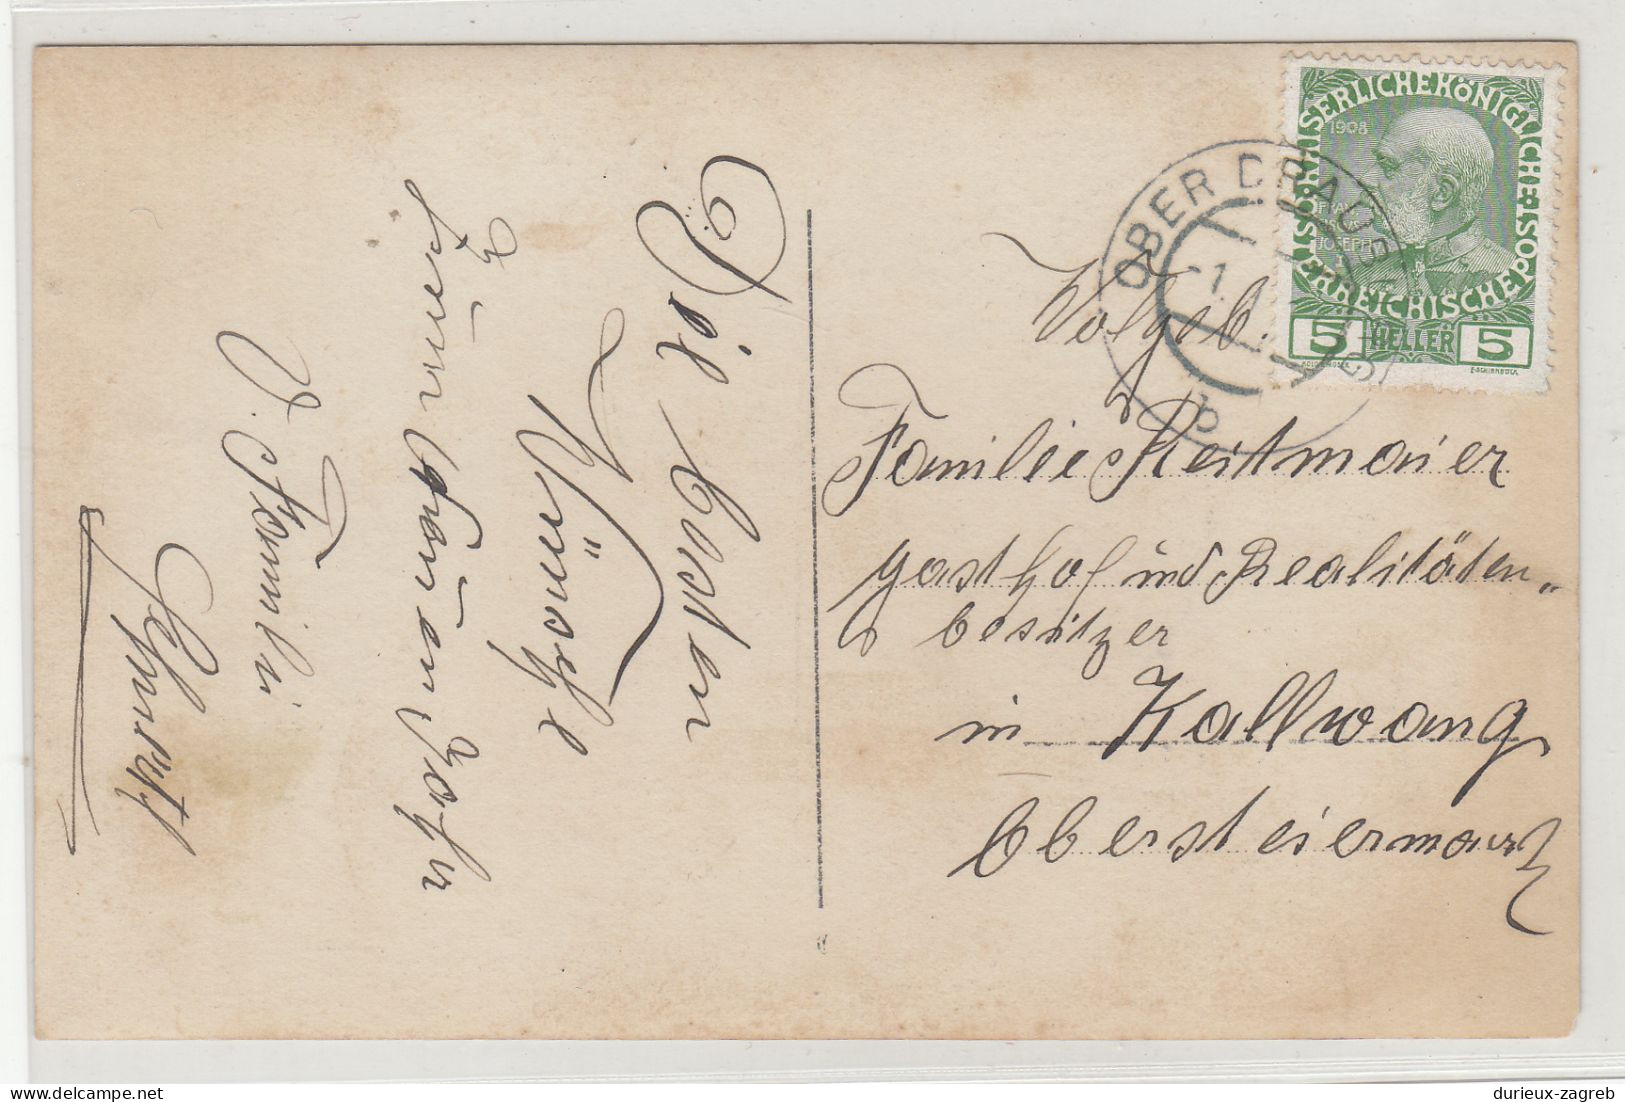 Die besten
Wünsche
zum neuen Jahr
d. Familie
OBER DRAUB
-1
b
1908
KAISERLICHE KÖNIGLICHE
ÖSTERREICHISCHE POST
FRANZ
JOSEPH
I
5 HELLER 5
Wolgeb.
Familie Reitmaier
Gasthof und Realitäten-
besitzer
in Kallwang
Obersteiermark
delcampe.net
durieux-zagreb